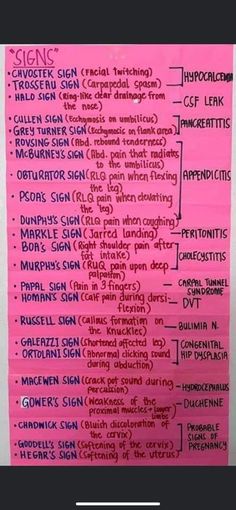 "SIGNS"
• CHVOSTEK SIGN (Facial Twitching)
• TROSSEAU SIGN (Carpapedal Spasm)
HYPOCALCEMIA
• HALO SIGN (Ring-like clear drainage from
the nose)
- CSF LEAK
• CULLEN SIGN (Ecchymosis on umbilicus)
• GREY TURNER SIGN (Ecchymosis on flank area)
PANCREATITIS
• ROVSING SIGN (Abd. rebound tenderness)
• McBURNEY'S SIGN (Abd. pain that radiates
to the umbilicus)
• OBTURATOR SIGN (RLQ pain when flexing
the leg)
• PSOAS SIGN (RLQ pain when elevating
the leg)
• DUNPHY'S SIGN (RLQ pain when coughing)
APPENDICITIS
• MARKLE SIGN (Jarred landing)
- PERITONITIS
• BOA'S SIGN (Right shoulder pain after
fat intake)
• MURPHY'S SIGN (RUQ pain upon deep
palpation)
CHOLECYSTITIS
• PAPAL SIGN (Pain in 3 fingers)
- CARPAL TUNNEL
SYNDROME
• HOMAN'S SIGN (Calf pain during dorsi-
flexion)
- DVT
• RUSSELL SIGN (Callous formation on
the Knuckles)
- BULIMIA N.
• GALEAZZI SIGN (Shortened affected leg)
• ORTOLANI SIGN (Abnormal clicking sound
during abduction)
CONGENITAL
HIP DYSPLASIA
• MACEWEN SIGN (Crack pot sound during
percussion)
- HYDROCEPHALUS
• GOWER'S SIGN (Weakness of the
proximal muscles - lower
limbs)
- DUCHENNE
• CHADWICK SIGN (Bluish discoloration of
the cervix)
• GOODELL'S SIGN (Softening of the cervix)
• HEGAR'S SIGN (Softening of the uterus)
PROBABLE
SIGNS OF
PREGNANCY